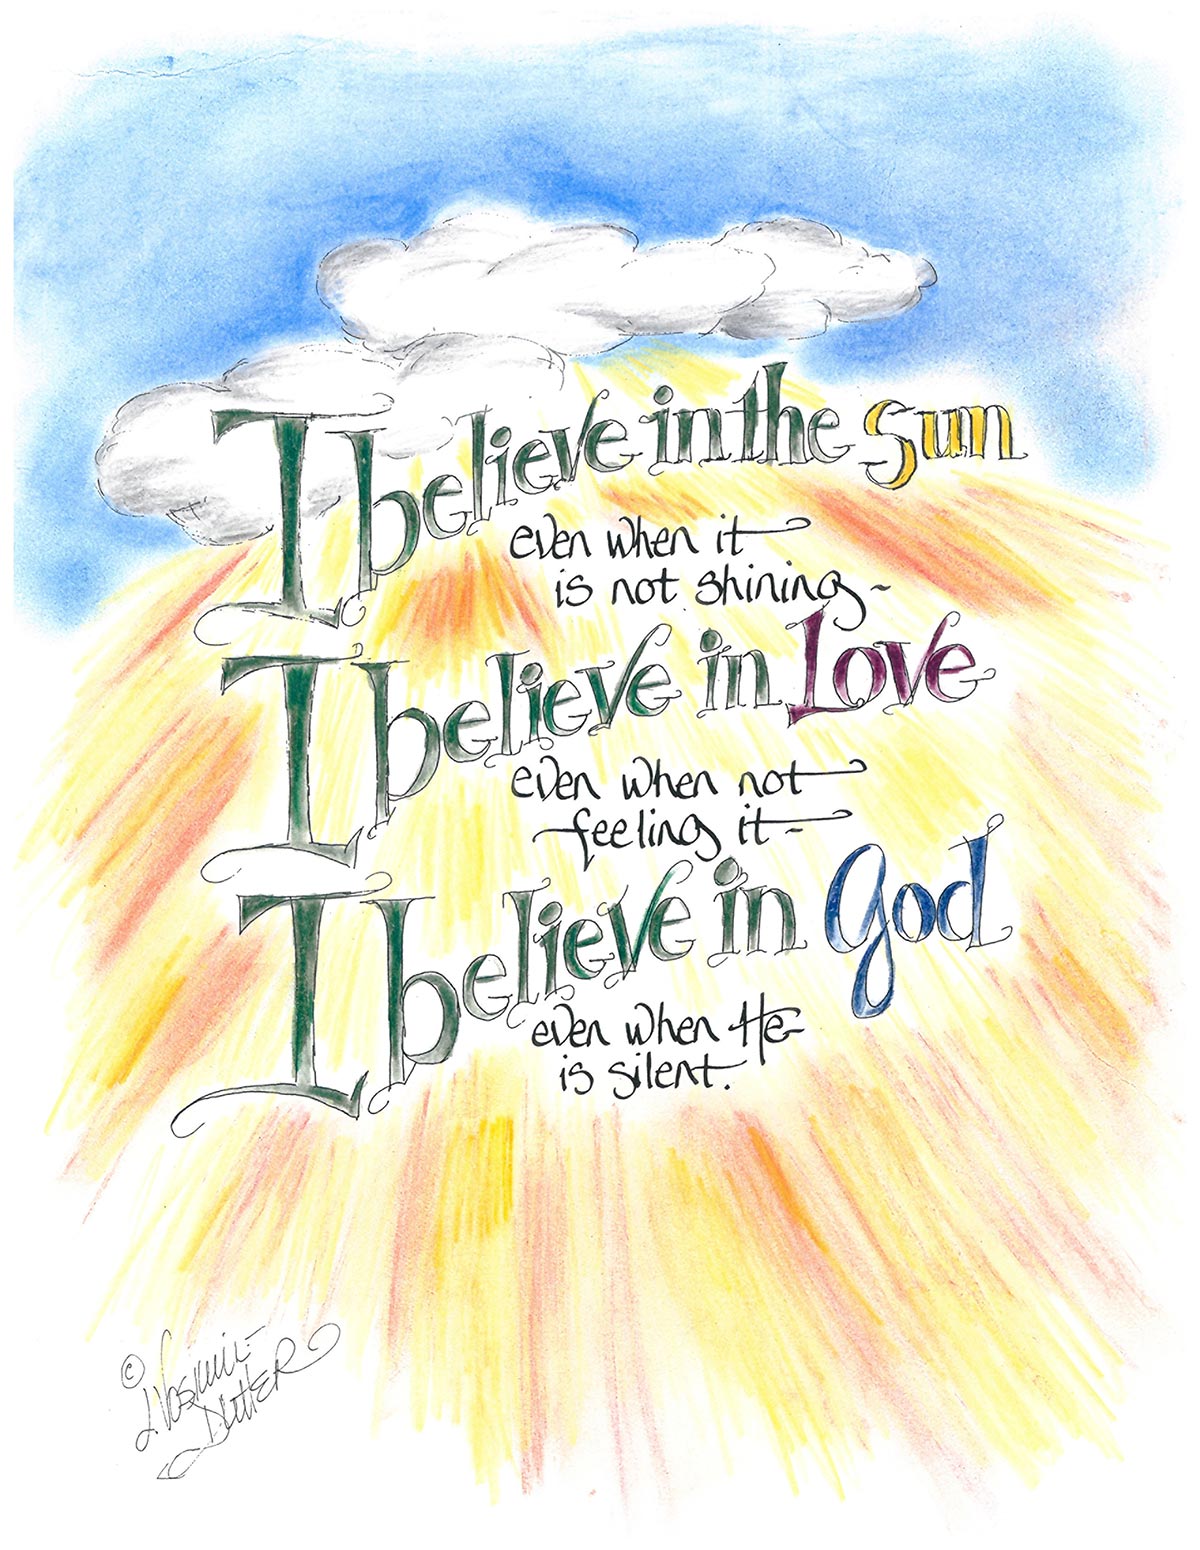 I believe in the sun
even when it
is not shining~
I believe in Love
even when not
feeling it~
I believe in God
even when He
is silent.
©